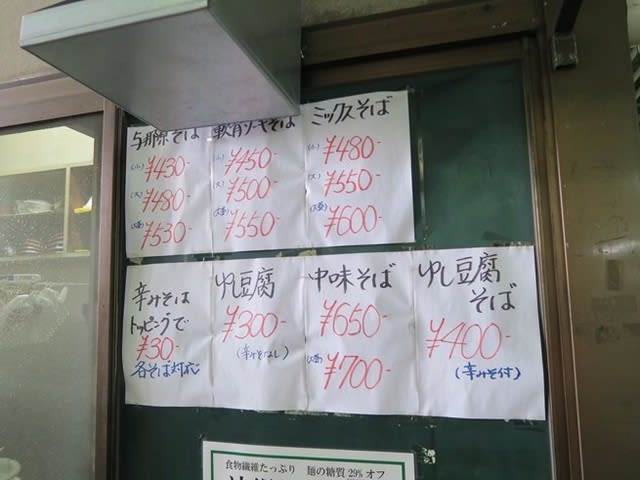 与那原そば
(小) ¥430-
(大) ¥480-
(大盛) ¥530-
軟骨ソーキそば
(小) ¥450-
(大) ¥500-
(大盛) ¥550-
ミックスそば
(小) ¥480-
(大) ¥550-
(大盛) ¥600-
辛みそは
トッピングで
¥30-
各そば対応
ゆし豆腐
¥300-
(辛みそなし)
中味そば
¥650-
(大盛) ¥700-
ゆし豆腐
そば
¥400-
(辛みそ付)
食物繊維たっぷり 麺の糖質29%オフ